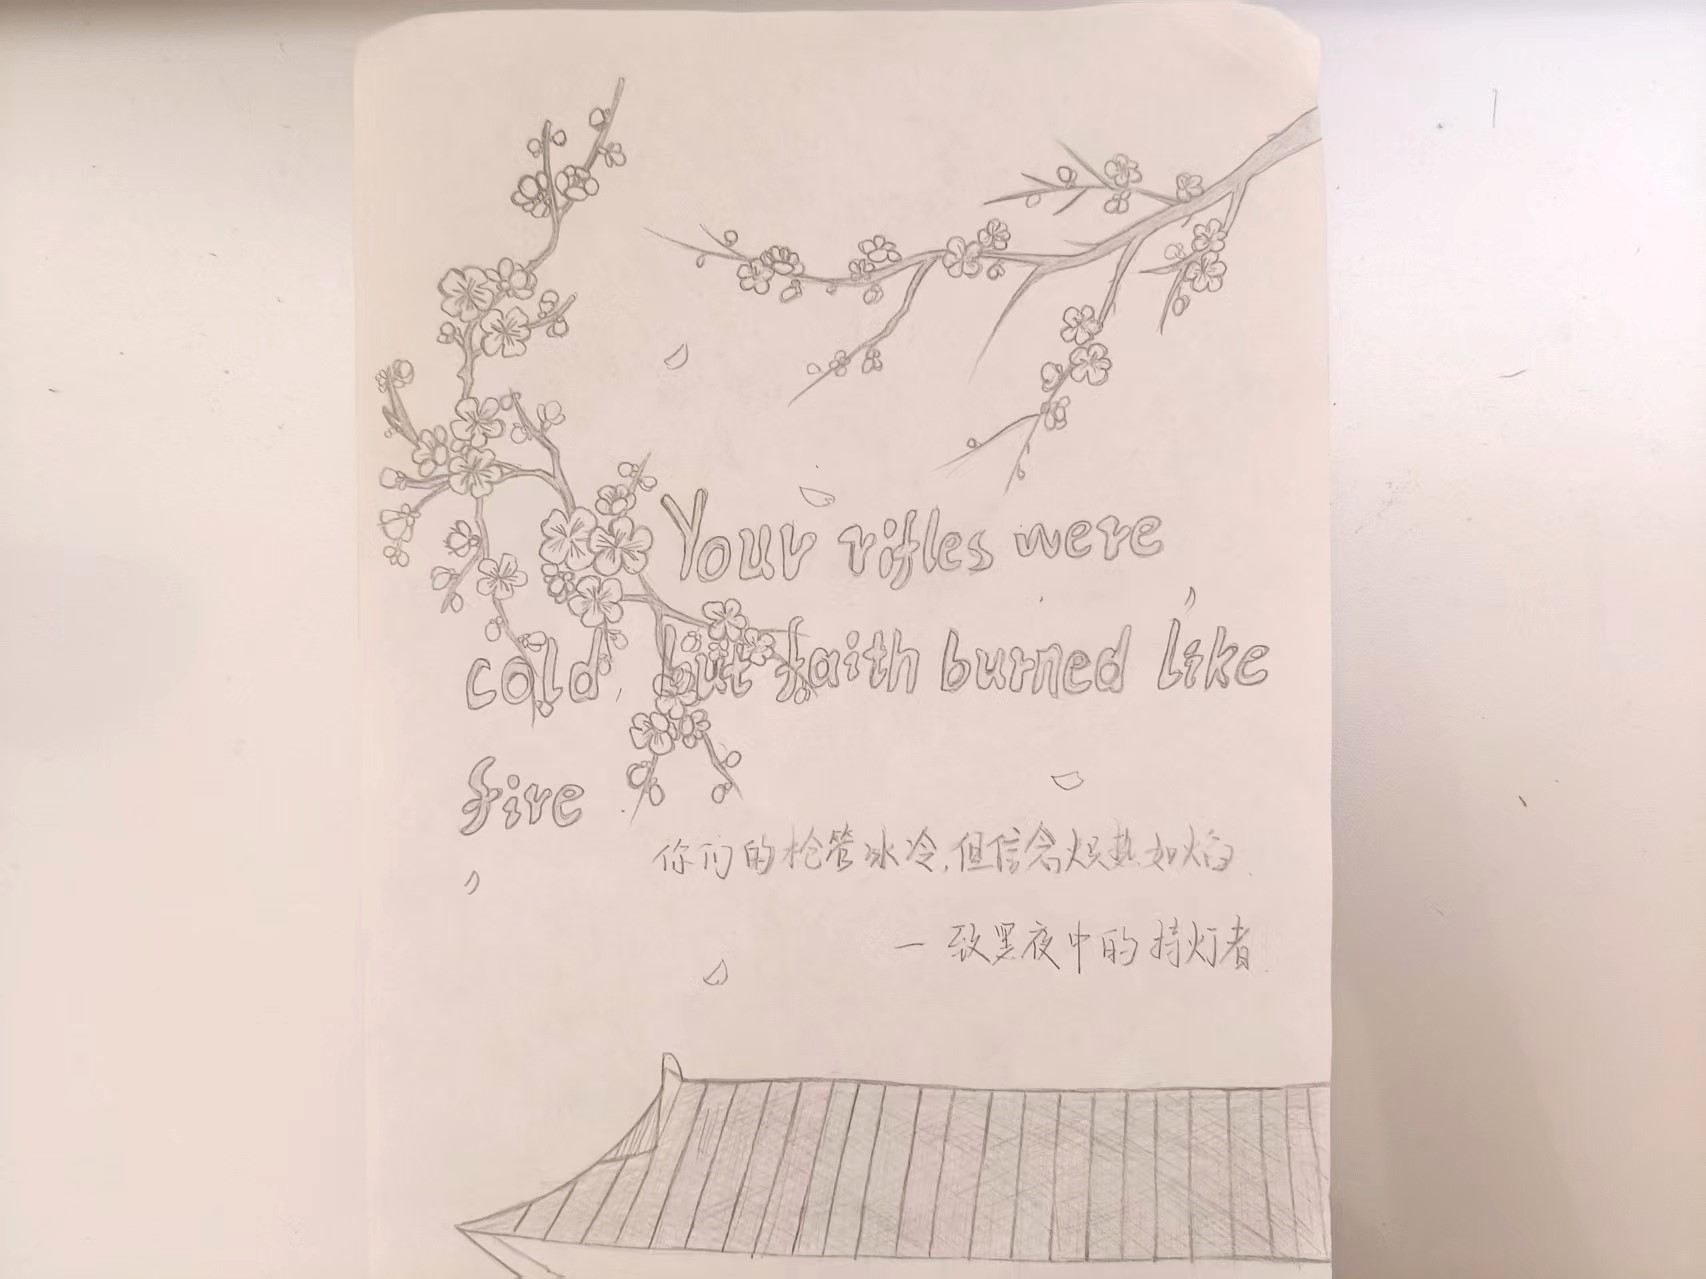 Your rifles were
cold, but faith burned like
fire
你们的枪管冰冷,但信念炽热如焰.
—致黑夜中的持灯者